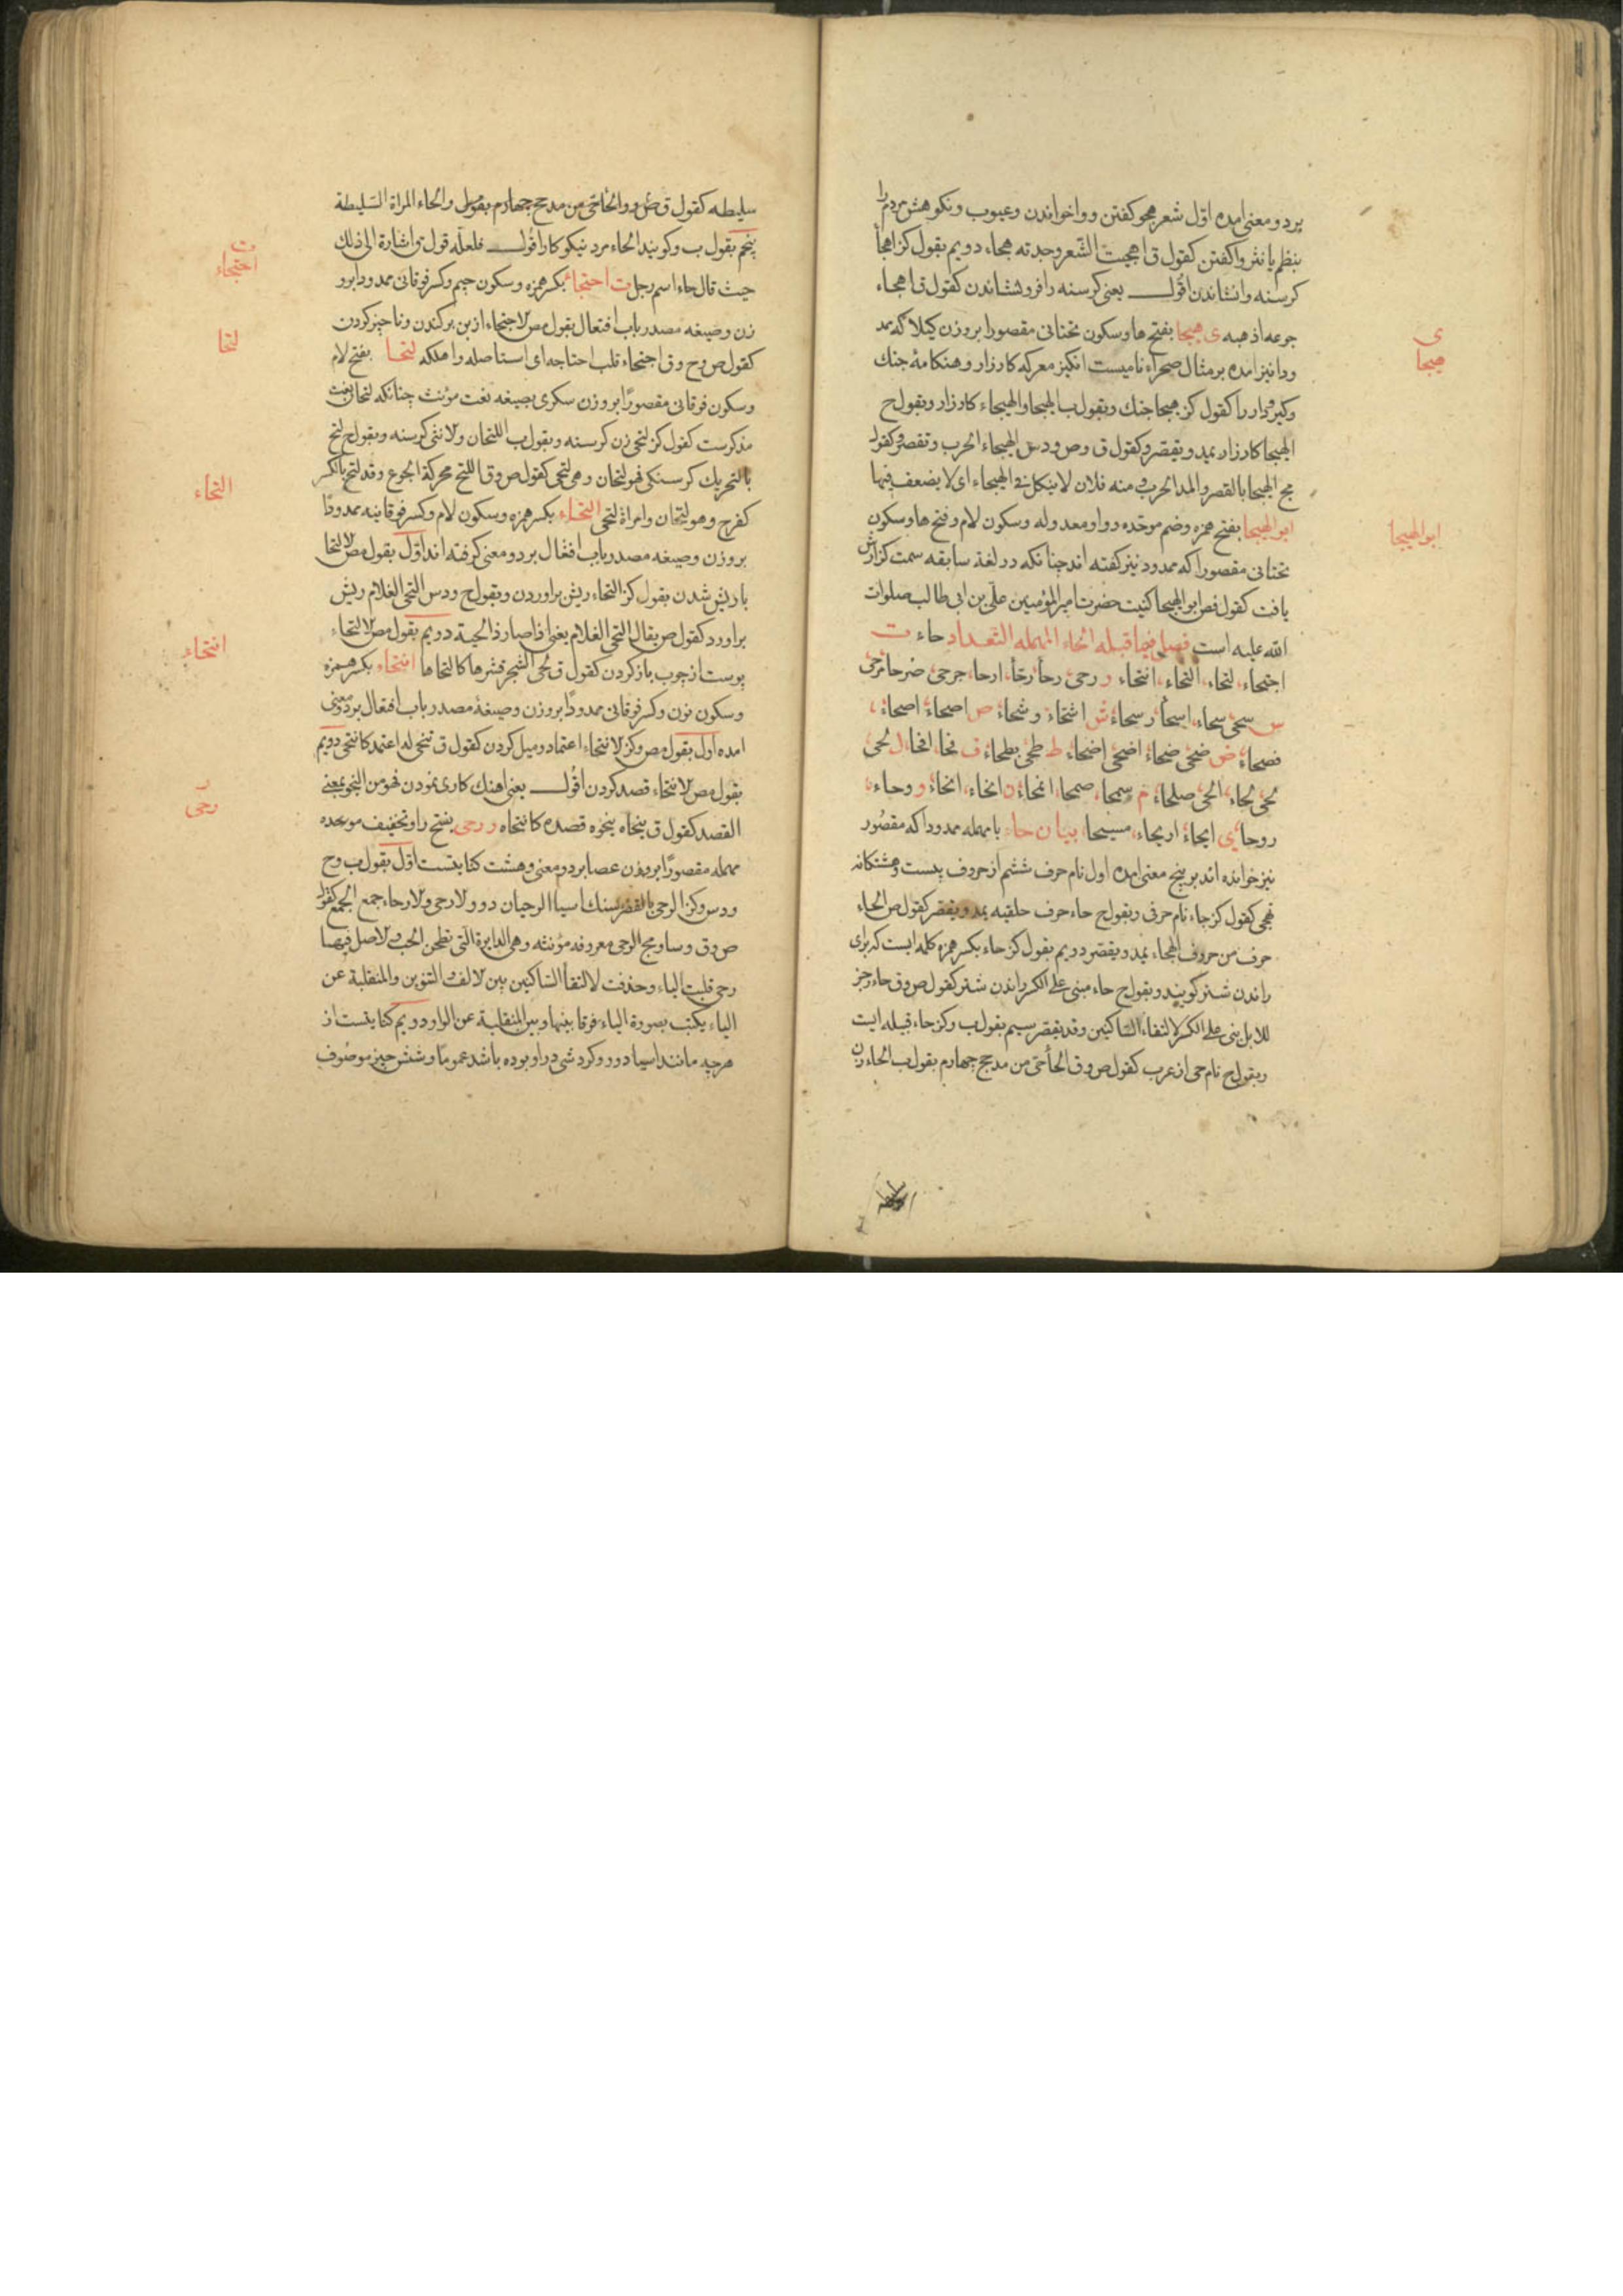 بر دو معنی امده اول شعر هجو کفتن و واخواندن و عیوب و نکوهش مردم را
بنظم یا نثر واکفتن کقول ق اهجیت الشعر وجدته هجاء دویم بقول کز اهجأ
کرسنه وانشاندن اقول یعنی کرسنه را فرو نشاندن کقول ق اهجاء
جوعه اذهبه ی هیجا بفتح ها و سکون تحتانی مقصورا بر وزن کیلا که بمد
ی
هیجا
ودا نیز امده بر مثال صحراء نامیست انکیز معرکه کارزار و هنکامهٔ جنك
وکیر و دار را کقول کز هیجا جنك وبقول ب الهیجا والهیجاء کارزار وبقول ح
الهیجا کارزار یمد ویقصر وکقول ق وص ودس الهیجاء الحرب وتقصر وکقول
مج الهیجا بالقصر والمد الحرب ومنه فلان لا ینکل فی الهیجاء ای لا یضعف فیها
ابو الهیجا بفتح همزه وضم موحده و واو معدوله وسکون لام وفتح ها وسکون
ابو الهیجا
تحتانی مقصورا که ممدود نیز کفته اند چنانکه در لغة سابقه سمت کزارش
یافت کقول فص ابو الهیجا کنیت حضرت امیر المؤمنین علی بن ابی طالب صلوات
الله علیه است فصل فیما قبله الحاء المهمله التعداد حاء ت
اجتحاء، لتحاء، التحاء، انتحاء ر رحی رحأ ارحا، جرحی
س سحی سحاء، اسحاء ش اشتحاء وشحاء ص اصحاء
فصحاء ض ضحی ضحاء اضحی اضحاء ط طحی بطحاء ف فحا افحا ل لحی
لحی لحاء، الحی صلحاء م سمحا، انمحاء ن انحاء، انحاء و وحاء
روحا ی ایحاء اریحاء، مسیحا بیان حاء با مهمله ممدودا که مقصور
نیز خوانده اند بر پنج معنی امده اول نام حرف ششم از حروف بیست وهشتکانه
تهجی کقول کز حاء نام حرفی وبقول ح حاء حرف حلقیه یمد ویقصر کقول ص الحاء
حرف من حروف الهجاء یمد ویقصر دویم بقول کز حاء بکسر همزه کلمه ایست که برای
راندن شتر کویند وبقول ح حاء مبنی علی الکسر راندن شتر کقول ص وق حاء زجر
للابل بنی علی الکسر لالتقاء الساکنین وقد یقصر سیم بقول ب وکز حاء قبیله ایست
وبقول ح نام حی از عرب کقول ص وق الحأ حی من مدحج چهارم بقول ب الحاء زن
سلیطه کقول ق ص والحاء المراة السلیطة
پنجم بقول ب وکویند الحاء مرد نیکو کار اقول فلعله قول ق اشارة الی ذلك
حیث قال حاء اسم رجل ت اجتحاء بکسر همزه وسکون جیم وکسر فوقانی ممدودا بر و
ت
اجتحاء
زن وصیغه مصدر باب افتعال بقول مص الاجتحاء از بن برکندن وناچیز کردن
کقول ص وح وق اجتحاء قلب اجتاحه ای استاصله واهلکه لتحا بفتح لام
لتحا
وسکون فوقانی مقصورا بر وزن سکری بصیغه نعت مؤنث چنانکه لتحان نعت
مذکرست کقول کز لتحی زن کرسنه وبقول ب اللتحان ولانثی کرسنه وبقول ح لتح
بالتحریك کرسنکی فهو لتحان وهی لتحی کقول ص وق اللتح محرکة الجوع وقد لتح بالکسر
کفرح وهو لتحان وامراة لتحی التحاء بکسر همزه وسکون لام وکسر فوقانیه ممدودا
التحاء
بر وزن وصیغه مصدر باب افتعال بر دو معنی کرفته اند اول بقول مص الالتحا
با ریش شدن بقول کز التحاء ریش براوردن وبقول ح ودس التحی الغلام ریش
براورد کقول ص یقال التحی الغلام یعنی اذا صار ذا لحیة دویم بقول مص الالتحاء
پوست از چوب باز کردن کقول ق لحی الشجر قشرها کالتحاها انتحاء بکسر همزه
انتحاء
وسکون نون وکسر فوقانی ممدودا بر وزن وصیغهٔ مصدر باب افتعال بر دو معنی
امده اول بقول مص وکز الانتحاء اعتماد ومیل کردن کقول ق تنحی له اعتمد کانتحی دویم
بقول مص الانتحاء قصد کردن اقول یعنی اهنك کاری نمودن فهو من النحو بمعنی
القصد کقول ق ینحاه ینحوه قصده کانتحاه ر رحی بفتح را وتخفیف موحده
ر
رحی
مهمله مقصورا بر وزن عصا بر دو معنی وهشت کنایتست اول بقول ب وح
ودس وکز الرحی بالقصر سنك اسیا الرحیان دو والارحی والارحاء جمع الجمع کقول
ص وق وسا ومج الرحی معروفه مؤنثه وهی الدایرة التی تطحن الحب والاصل فیها
رحی قلبت الیاء وحذفت لالتقأ الساکنین بین الالف والتنوین والمنقلبة عن
الیاء یکتب بصورة الیاء فرقا بینها وبین المنقلبة عن الواو دویم کنایتست از
هر چه مانند اسیا دور وکردشی در او بوده باشد عموما وشش چیز موصوف